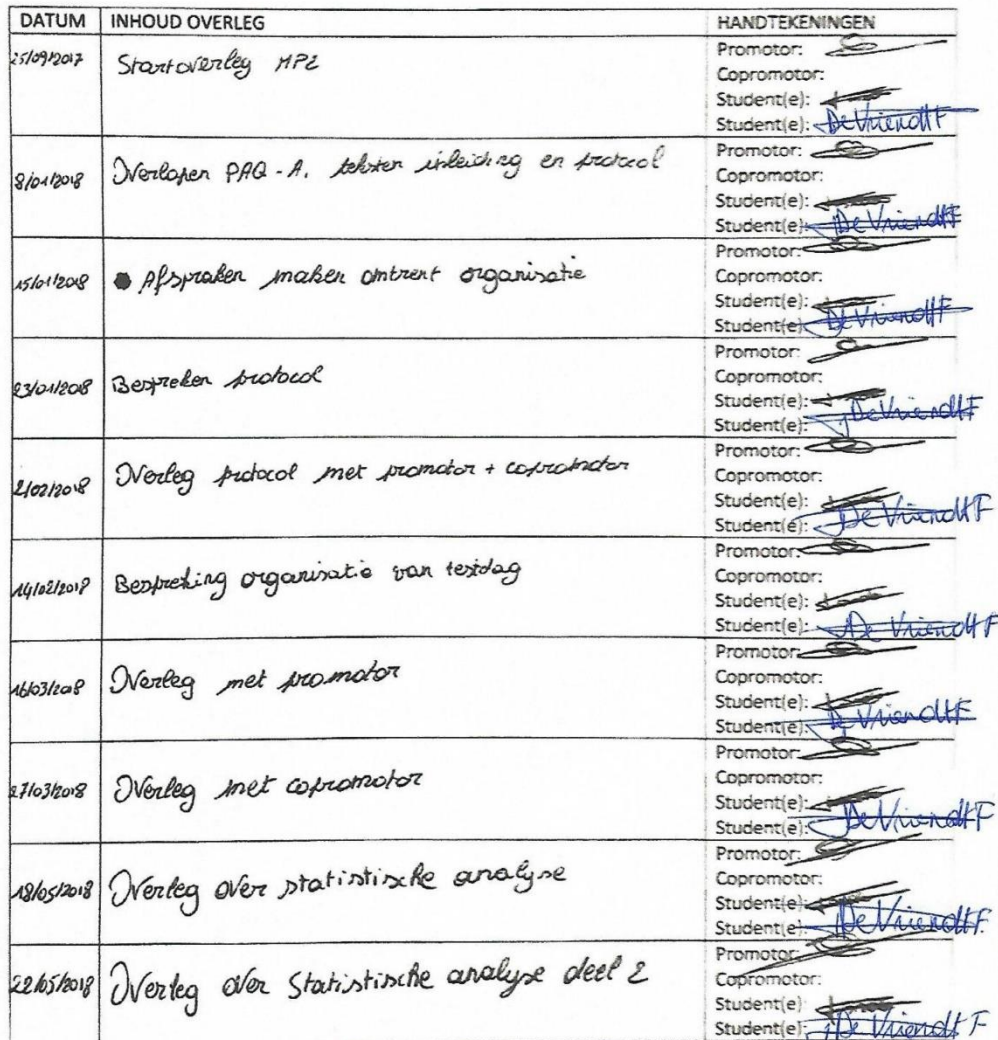 DATUM INHOUD OVERLEG HANDTEKENINGEN
25/09/2017 Startoverleg MP2
Promotor:
Copromotor:
Student(e):
Student(e): De Vriendt F
8/01/2018 Overlopen PAQ-A, teksten inleiding en protocol
Promotor:
Copromotor:
Student(e):
Student(e): De Vriendt F
15/01/2018 Afspraken maken omtrent organisatie
Promotor:
Copromotor:
Student(e):
Student(e): De Vriendt F
23/01/2018 Bespreken protocol
Promotor:
Copromotor:
Student(e):
Student(e): De Vriendt F
2/02/2018 Overleg protocol met promotor + copromotor
Promotor:
Copromotor:
Student(e):
Student(e): De Vriendt F
14/02/2018 Bespreking organisatie van testdag
Promotor:
Copromotor:
Student(e):
Student(e): De Vriendt F
16/03/2018 Overleg met promotor
Promotor:
Copromotor:
Student(e):
Student(e): De Vriendt F
27/03/2018 Overleg met copromotor
Promotor:
Copromotor:
Student(e):
Student(e): De Vriendt F
18/05/2018 Overleg over statistische analyse
Promotor:
Copromotor:
Student(e):
Student(e): De Vriendt F.
22/05/2018 Overleg over Statistische analyse deel 2
Promotor:
Copromotor:
Student(e):
Student(e): De Vriendt F